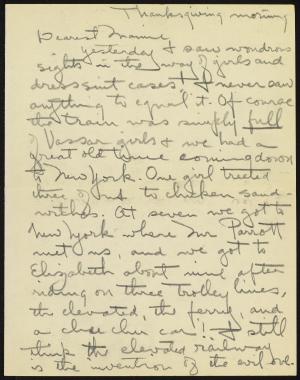 Thanksgiving morning
Dearest Mamie,
Yesterday I saw wondrous
sights in the way of girls and
dress suit cases! I never saw
anything to equal it. Of course
the train was simply full
of Vassar girls & we had a
great old time coming down
to New York. One girl treated
three of us to chicken sand-
witches. At seven we got to
New York where Mr Parrott
met us, and we got to
Elizabeth about nine after
riding on three trolley lines,
the elevated, the ferry, and
a choo choo car! I still
think the elevated railway
is the invention of the evil one.